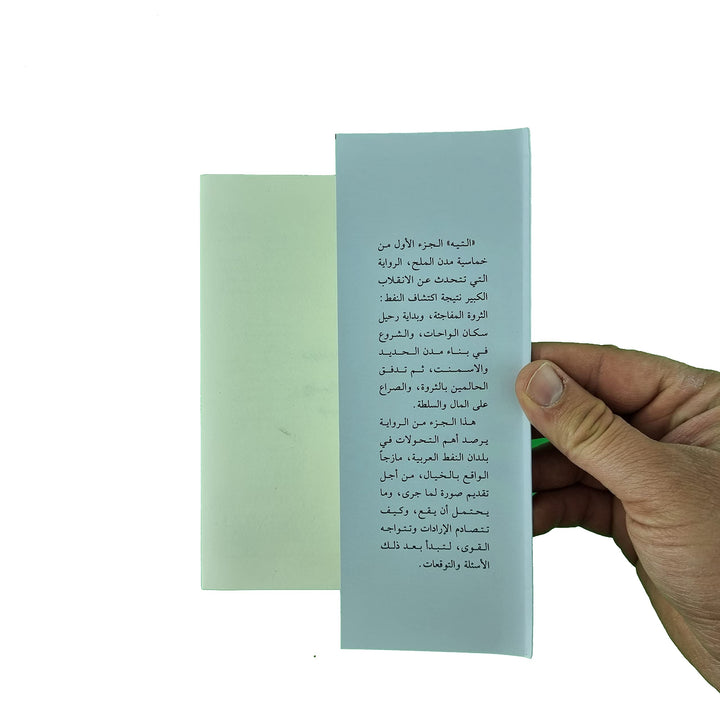 «التيه» الجزء الأول من
خماسية مدن الملح، الرواية
التي تتحدث عن الانقلاب
الكبير نتيجة اكتشاف النفط:
الثروة المفاجئة، وبداية رحيل
سكان الواحات، والشروع
في بناء مدن الحديد
والاسمنت، ثم تدفق
الحالمين بالثروة، والصراع
على المال والسلطة.
هذا الجزء من الرواية
يرصد أهم التحولات في
بلدان النفط العربية، مازجاً
الواقع بالخيال، من أجل
تقديم صورة لما جرى، وما
يحتمل أن يقع، وكيف
تتصادم الإرادات وتتواجه
القوى، لتبدأ بعد ذلك
الأسئلة والتوقعات.